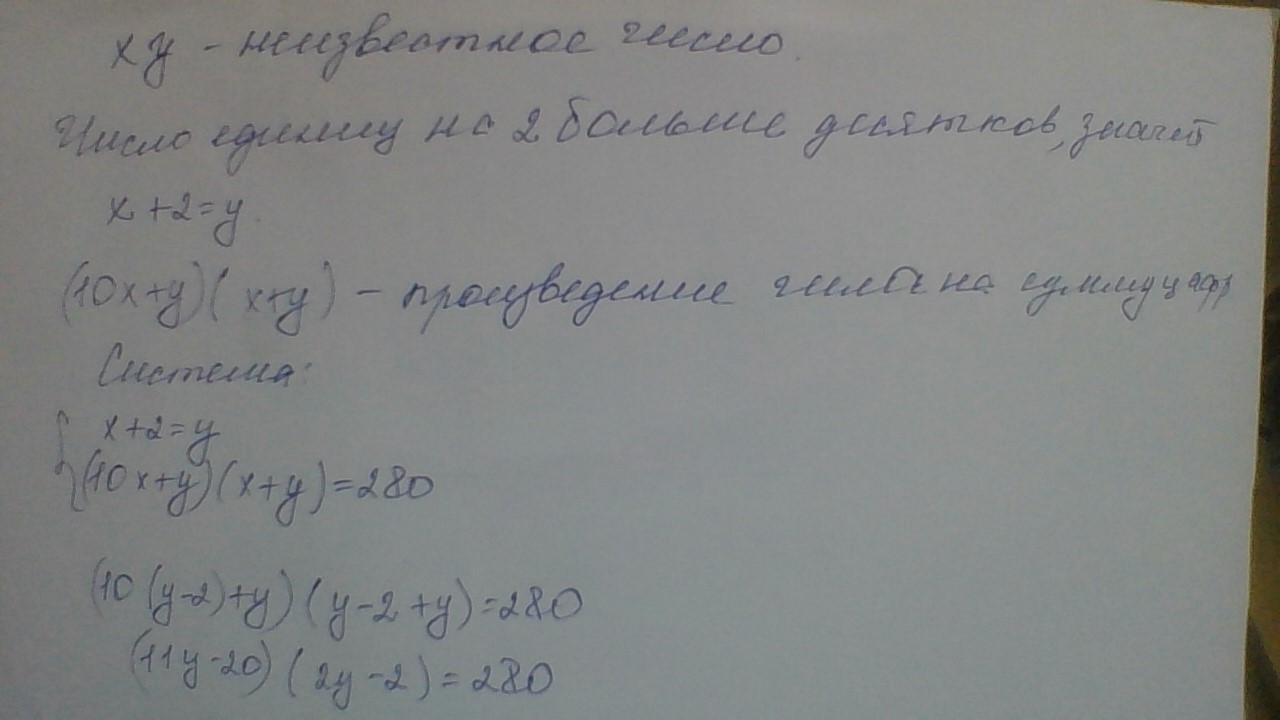 xy - неизвестное число.
Число единиц на 2 больше десятков, значит
x+2=y.
(10x+y)(x+y) - произведение числа на сумму цифр
Система:
x+2=y
(10x+y)(x+y)=280
(10(y-2)+y)(y-2+y)=280
(11y-20)(2y-2)=280